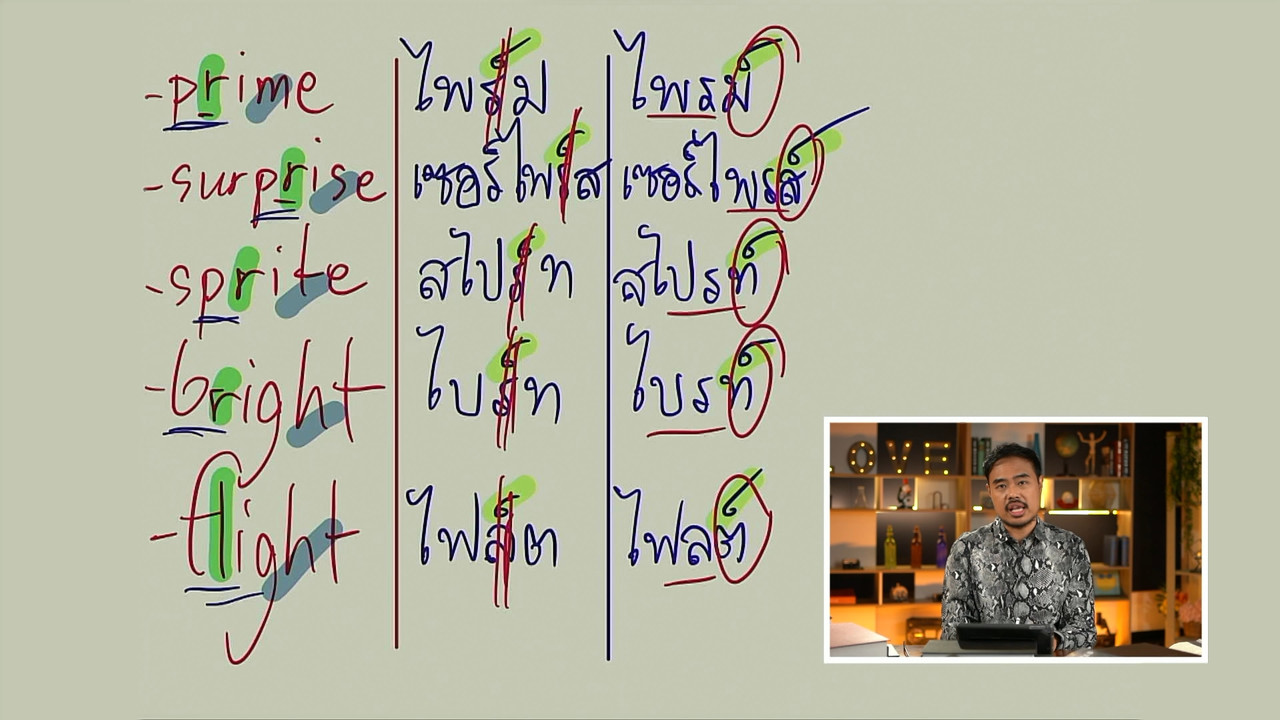 -prime ไพร์ม ไพรม์
-surprise เซอร์ไพร์ส เซอร์ไพรส์
-sprite สไปร์ท สไปรท์
-bright ไบร์ท ไบรท์
-flight ไฟล์ต ไฟลต์
LOVE